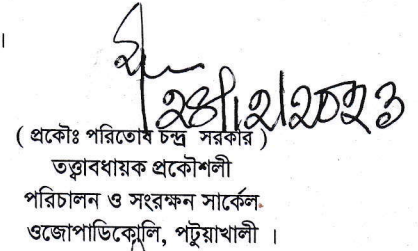 ।
28/12/2023
( প্রকৌঃ পরিতোষ চন্দ্র সরকার )
তত্ত্বাবধায়ক প্রকৌশলী
পরিচালন ও সংরক্ষন সার্কেল
ওজোপাডিকোলি, পটুয়াখালী ।